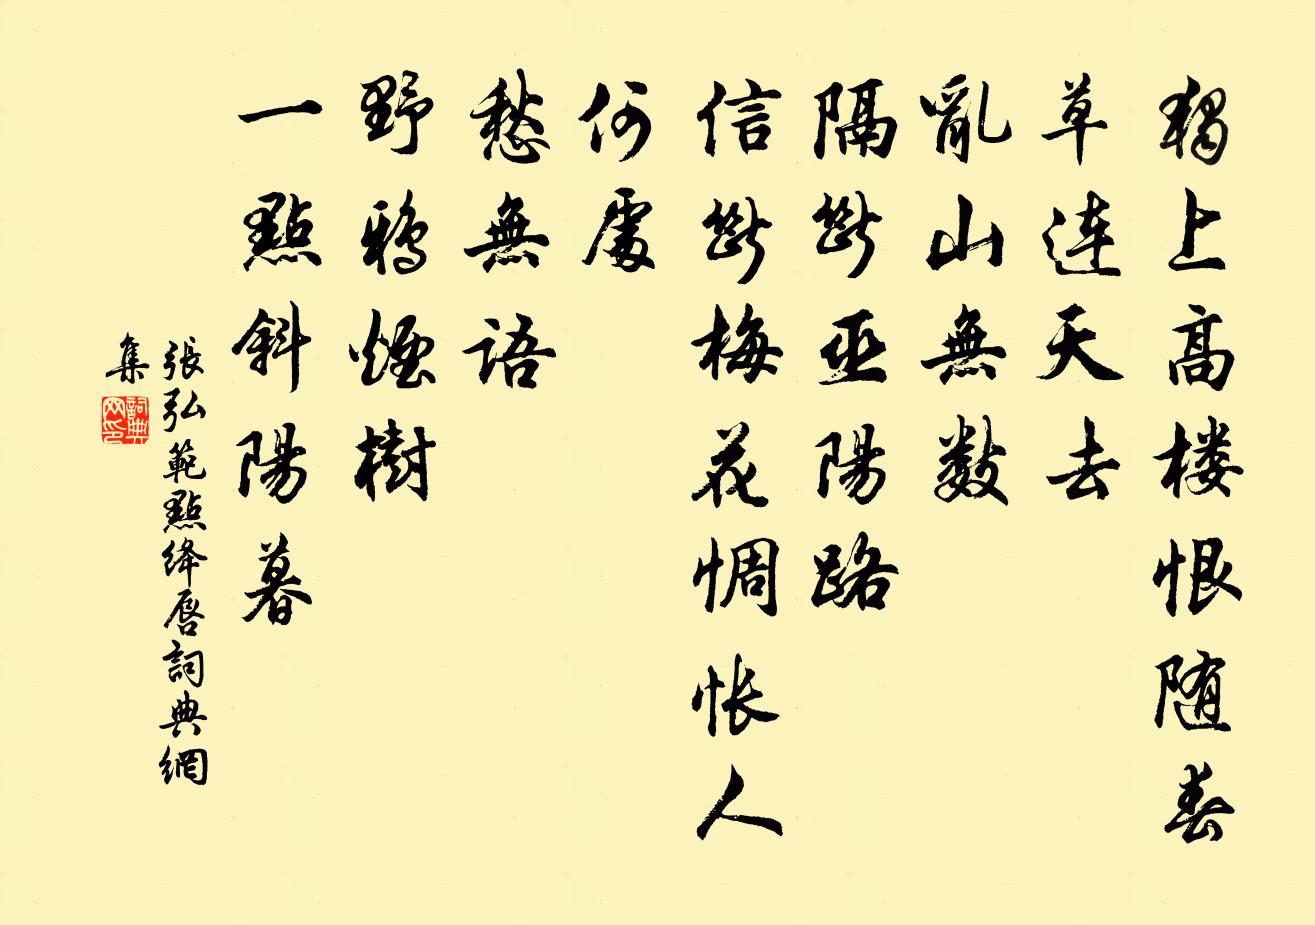 獨上高楼恨随春
草連天去
亂山無數
隔斷巫陽路
信斷梅花惆怅人
何處
愁無語
野鴉煙樹
一點斜陽暮
張弘範點绛唇詞典網
集
詞典網印